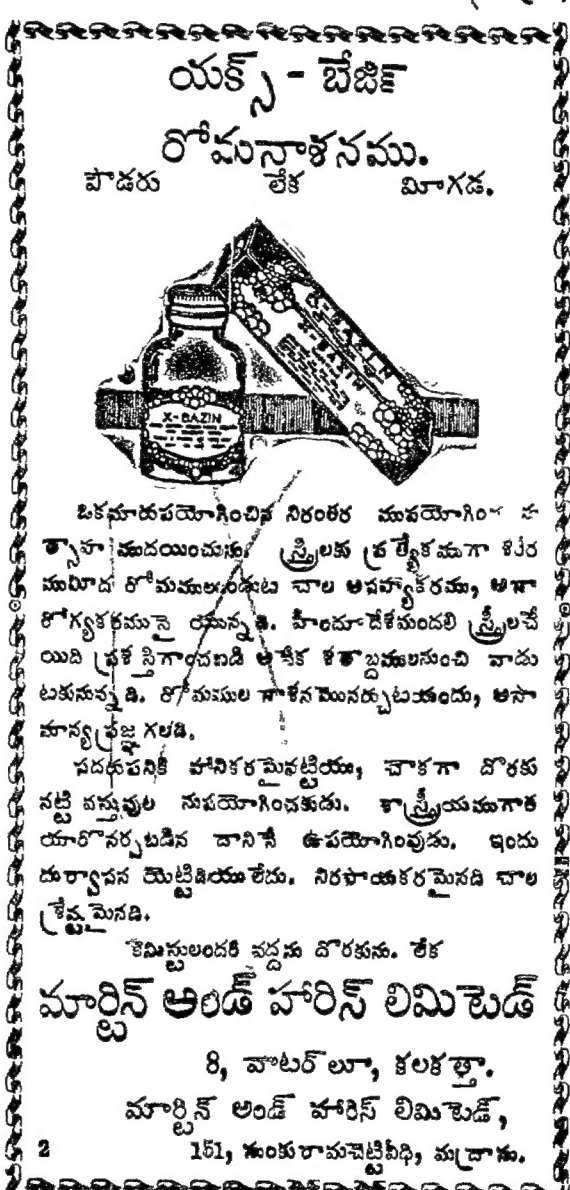 యక్స్ - బేజిక్
రోమనాశనము.
పౌడరు లేక మీగడ.
X-BAZIN
X-BAZIN
X-BAZIN
ఒకమారుపయోగించిన నిరంతర ముపయోగించ
త్సాహ ముదయించును. స్త్రీలకు ప్రత్యేకముగా శరీర
ముమీద రోమములుండుట చాల అసహ్యకరము, అనా
రోగ్యకరమునై యున్నది. హిందూదేశమందలి స్త్రీలచే
యిది ప్రశస్తిగాంచబడి అనేక శతాబ్దములనుంచి వాడు
టకునున్నది. రోమముల నాశన మొనర్చుటయందు, అసా
మాన్యప్రజ్ఞ గలది.
పదరుపనికి హానికరమైనట్టియు, చౌకగా దొరకు
నట్టి వస్తువుల నుపయోగించకుడు. శాస్త్రీయముగాత
యారొనర్చబడిన దానినే ఉపయోగింపుడు. ఇందు
దుర్వాసన యెట్టిదియు లేదు. నిరపాయకరమైనది చాల
శ్రేష్టమైనది.
కెమిస్టులందరి వద్దను దొరకును. లేక
మార్టిన్ అండ్ హారిస్ లిమిటెడ్
8, వాటర్ లూ, కలకత్తా.
మార్టిన్ అండ్ హారిస్ లిమిటెడ్,
2 151, సుంకురామచెట్టివీధి, మద్రాసు.